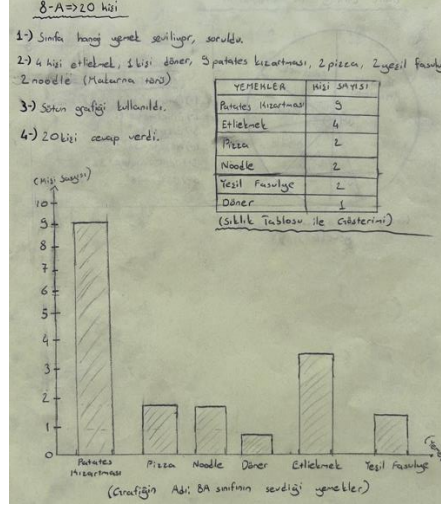 8-A => 20 kişi
1-) Sınıfa hangi yemek seviliyor, soruldu.
2-) 4 kişi etliekmek, 1 kişi döner, 9 patates kızartması, 2 pizza, 2 yeşil fasulye
2 noodle (Makarna türü)
3-) Sütun grafiği kullanıldı.
4-) 20 kişi cevap verdi.
YEMEKLER KİŞİ SAYISI
Patates Kızartması 9
Etliekmek 4
Pizza 2
Noodle 2
Yeşil Fasulye 2
Döner 1
(Sıklık Tablosu ile Gösterimi)
(Kişi Sayısı)
10
9
8
7
6
5
4
3
2
1
0
Patates Kızartması
Pizza
Noodle
Döner
Etliekmek
Yeşil Fasulye
(Grafiğin Adı; 8A sınıfının sevdiği yemekler)